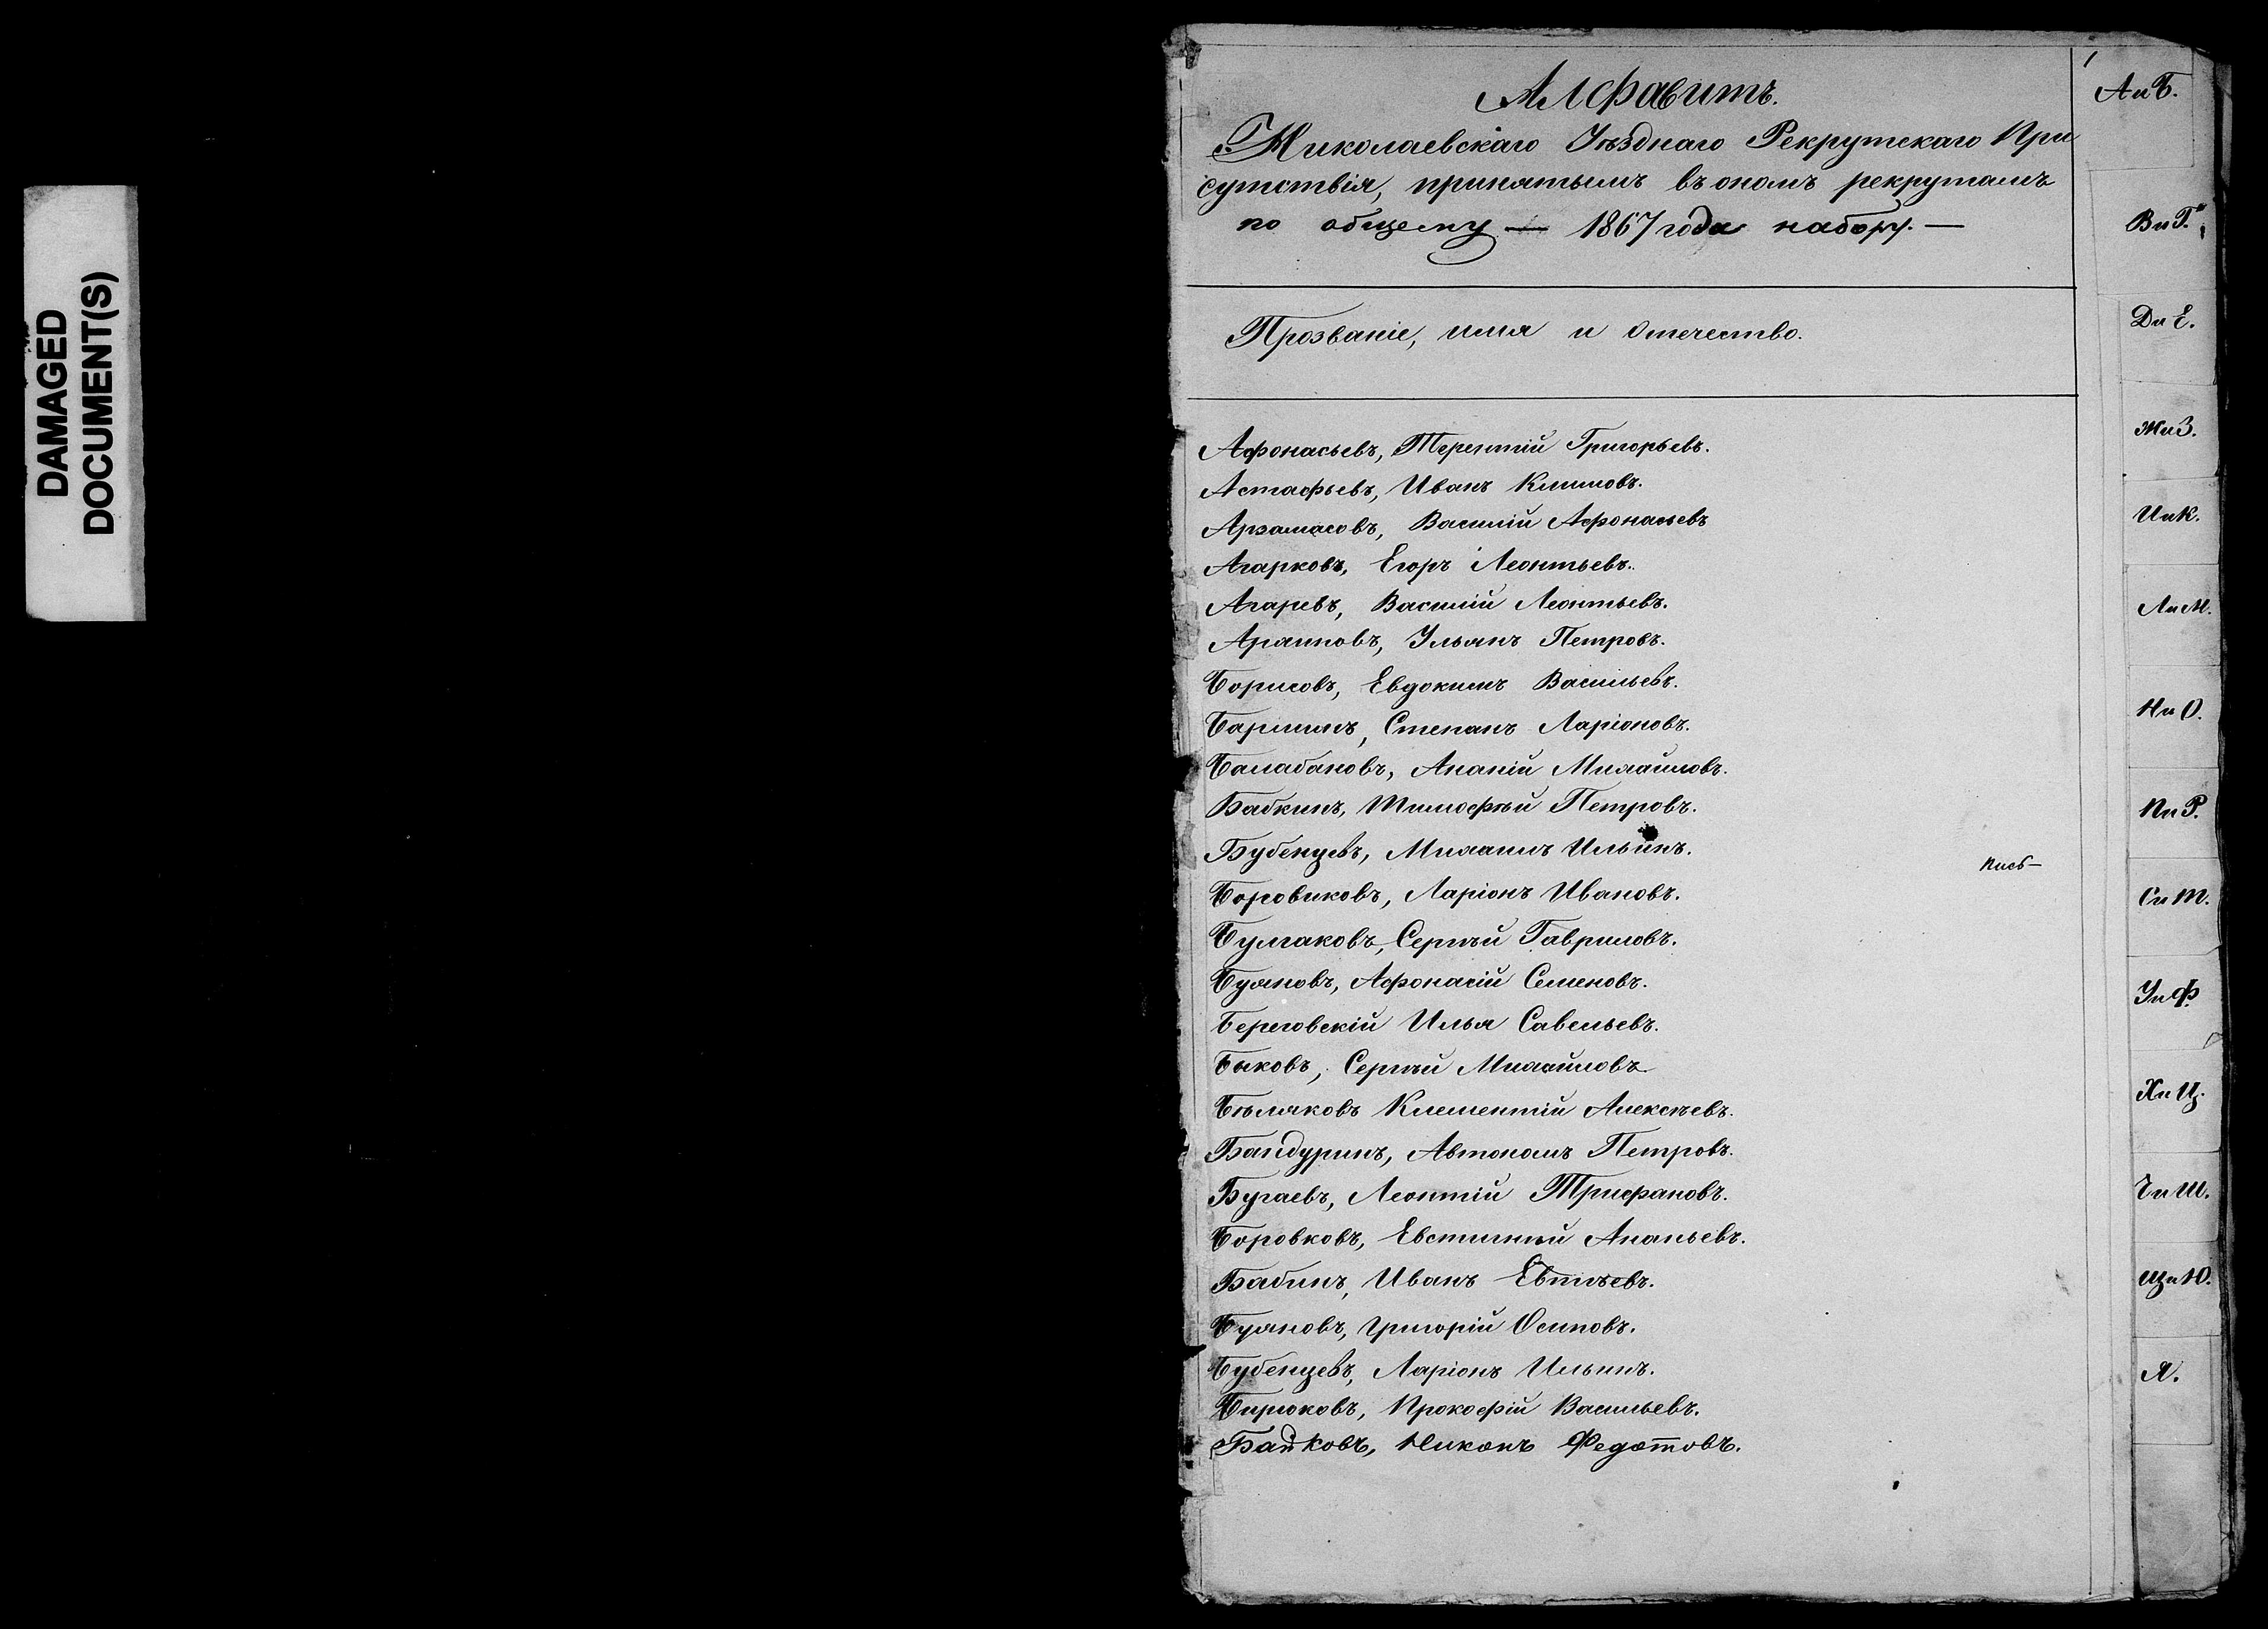 DAMAGED
DOCUMENT(S)
Алфавитъ.
Николаевскаго Уѣзднаго Рекрутскаго При
сутствія, принятымъ въ ономъ рекрутамъ
по общему — 1867 года набору. —
Прозваніе, имя и отечество.
Афонасьевъ, Терентій Григорьевъ.
Астафьевъ, Иванъ Климовъ.
Арзамасовъ, Василій Афонасьевъ
Агарковъ, Егоръ Леонтьевъ.
Агаревъ, Василій Леонтьевъ.
Ульянъ Петровъ.
Борисовъ, Евдокимъ Васильевъ.
Степанъ Ларіоновъ.
Балабановъ, Ананій Михайловъ.
Бабкинъ, Тимофѣй Петровъ.
Бубенцевъ, Михаилъ Ильинъ.
Боровиковъ, Ларіонъ Ивановъ.
Булгаковъ, Сергѣй Гавриловъ.
Буяновъ, Афонасій Семеновъ.
Береговскій Илья Савельевъ.
Быковъ, Сергѣй Михайловъ
Бѣляковъ Клементій Алексѣевъ.
Бандуринъ, Автономъ Петровъ.
Бугаевъ, Леонтій Трифановъ.
Боровковъ, Евстигнѣй Ананьевъ.
Бабинъ, Иванъ Евтѣевъ.
Буяновъ, Григорій Осиповъ.
Бубенцевъ, Ларіонъ Ильинъ.
Бирюковъ, Прокофій Васильевъ.
Байковъ, Никонъ Федотовъ.
1
А и Б.
В и Г.
Д и Е.
Ж и З.
И и К.
Л и М.
Н и О.
П и Р.
С и Т.
У и Ф
Х и Ц.
Ч и Ш.
Щ и Ю.
Я.